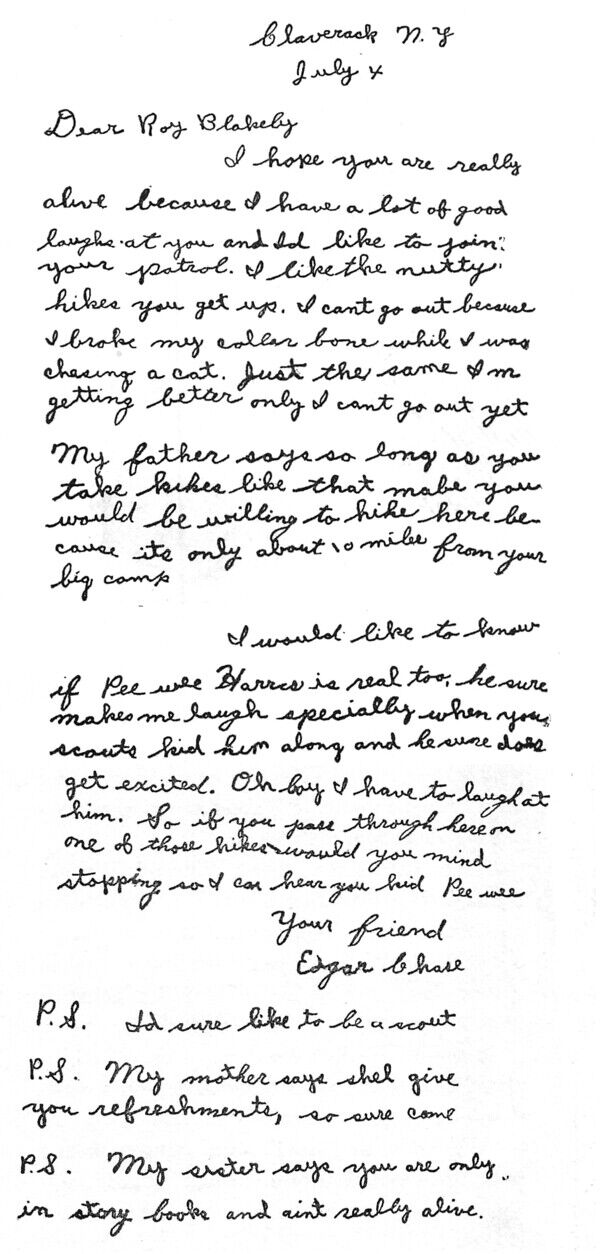 Claverack N.Y
July x
Dear Roy Blakeby
I hope you are really
alive because I have a lot of good
laughs at you and Id like to join
your patrol. I like the nutty
hikes you get up. I cant go out because
I broke my collar bone while I was
chasing a cat. Just the same Im
getting better only I cant go out yet
My father says so long as you
take hikes like that mabe you
would be willing to hike here be-
cause its only about 10 miles from your
big camp
I would like to know
if Pee wee Harres is real too, he sure
makes me laugh specially when you
scouts kid him along and he sure does
get excited. Oh boy I have to laugh at
him. So if you pass through here on
one of those hikes would you mind
stopping so I can hear you kid Pee wee
Your friend
Edgar Chase
P.S. Id sure like to be a scout
P.S. My mother says shel give
you refreshments, so sure come
P.S. My sister says you are only
in story books and aint really alive.